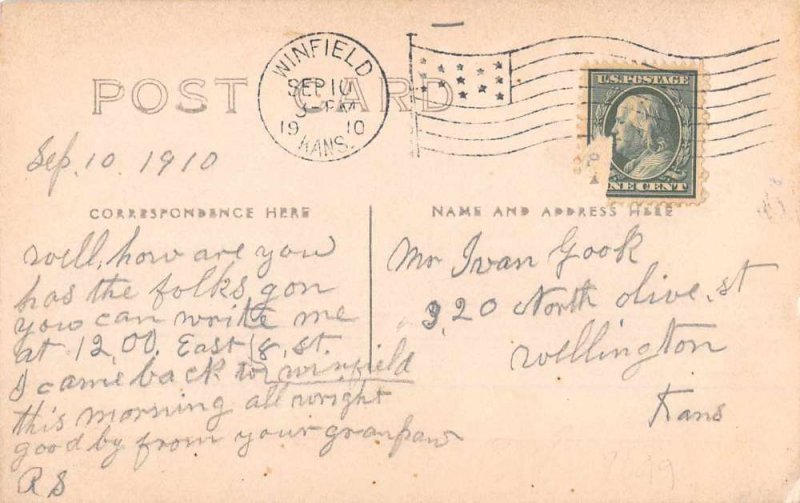 POST CARD
WINFIELD
SEP 10
19 10
KANS.
U.S. POSTAGE
ONE CENT
Sep. 10. 1910
CORRESPONDENCE HERE
NAME AND ADDRESS HERE
well, how are you
has the folks gon
yow can write me
at 12,00. East 8, st.
I came back to winfield
this morning all wright
good by from your granpaw
R S
Mr Ivan Gook
320 North olive. st
wellington
Kans